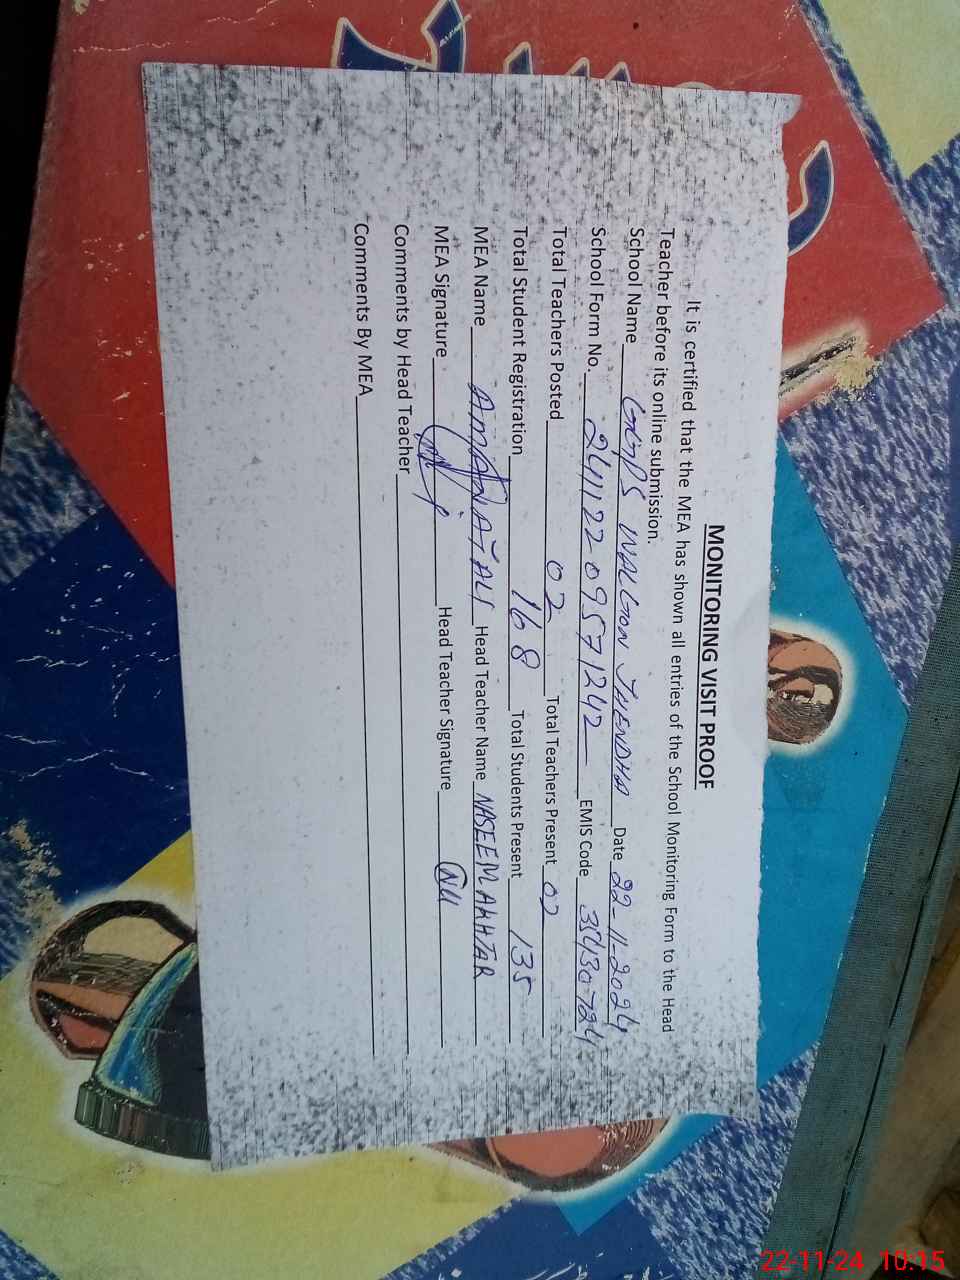 MONITORING VISIT PROOF
It is certified that the MEA has shown all entries of the School Monitoring Form to the Head
Teacher before its online submission.
School Name GGPS WALGON JHENDHA Date 22-11-2024
School Form No. 241122-09571242 EMIS Code 35430724
Total Teachers Posted 02 Total Teachers Present 02
Total Student Registration 168 Total Students Present 135
MEA Name AMANAT ALI Head Teacher Name NASEEM AKHTAR
MEA Signature Head Teacher Signature
Comments by Head Teacher
Comments By MEA
22-11-24 10:15